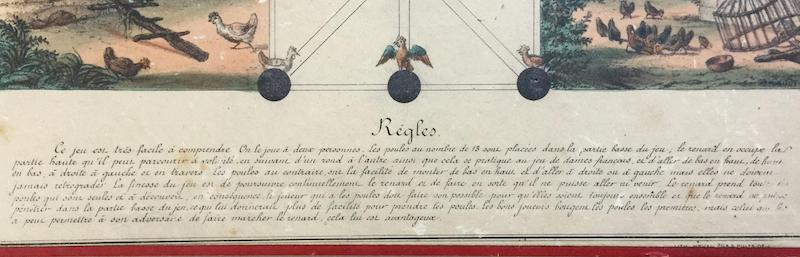 Régles.
Ce jeu est très facile à comprendre. On le joue à deux personnes. Les poules au nombre de 13 sont placées dans la partie basse du jeu; le renard en occupe la
partie haute qu'il peut parcourir à volonté, en suivant d'un rond à l'autre ainsi que cela se pratique au jeu de dames français, et d'aller de bas en haut, de haut
en bas, à droite à gauche et en travers. Les poules au contraire, ont la facilité de monter de bas en haut et d'aller à droite ou à gauche mais elles ne doivent
jamais rétrograder. La finesse du jeu est de poursuivre continuellement le renard et de faire en sorte qu'il ne puisse aller ni venir. Le renard prend
poules qui sont seules et à découvert, en conséquence le joueur qui a les poules doit faire son possible pour qu'elles soient toujours ensemble et que le renard ne
pénétrer dans la partie basse du jeu, ce qui lui donnerait plus de facilité pour prendre les poules. Les bons joueurs bougent les poules les premières, mais celui qui
a peut permettre à son adversaire de faire marcher le renard, cela lui est avantageux.